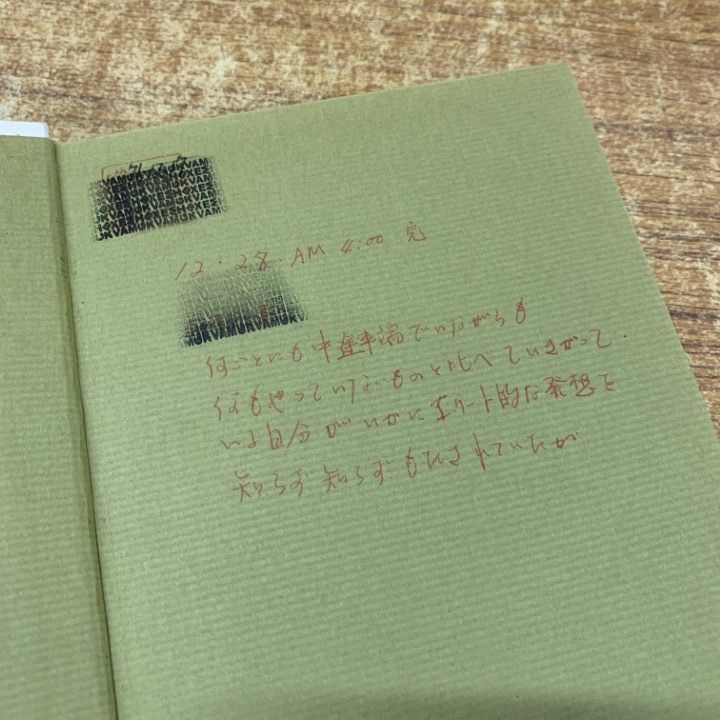 12・28・AM 4:00 完
何ごとにも中途半端でいながらも
何もやっていないものと比べていきがって
いる自分がいかにエリート的な発想を
知らず知らずもたされていたか